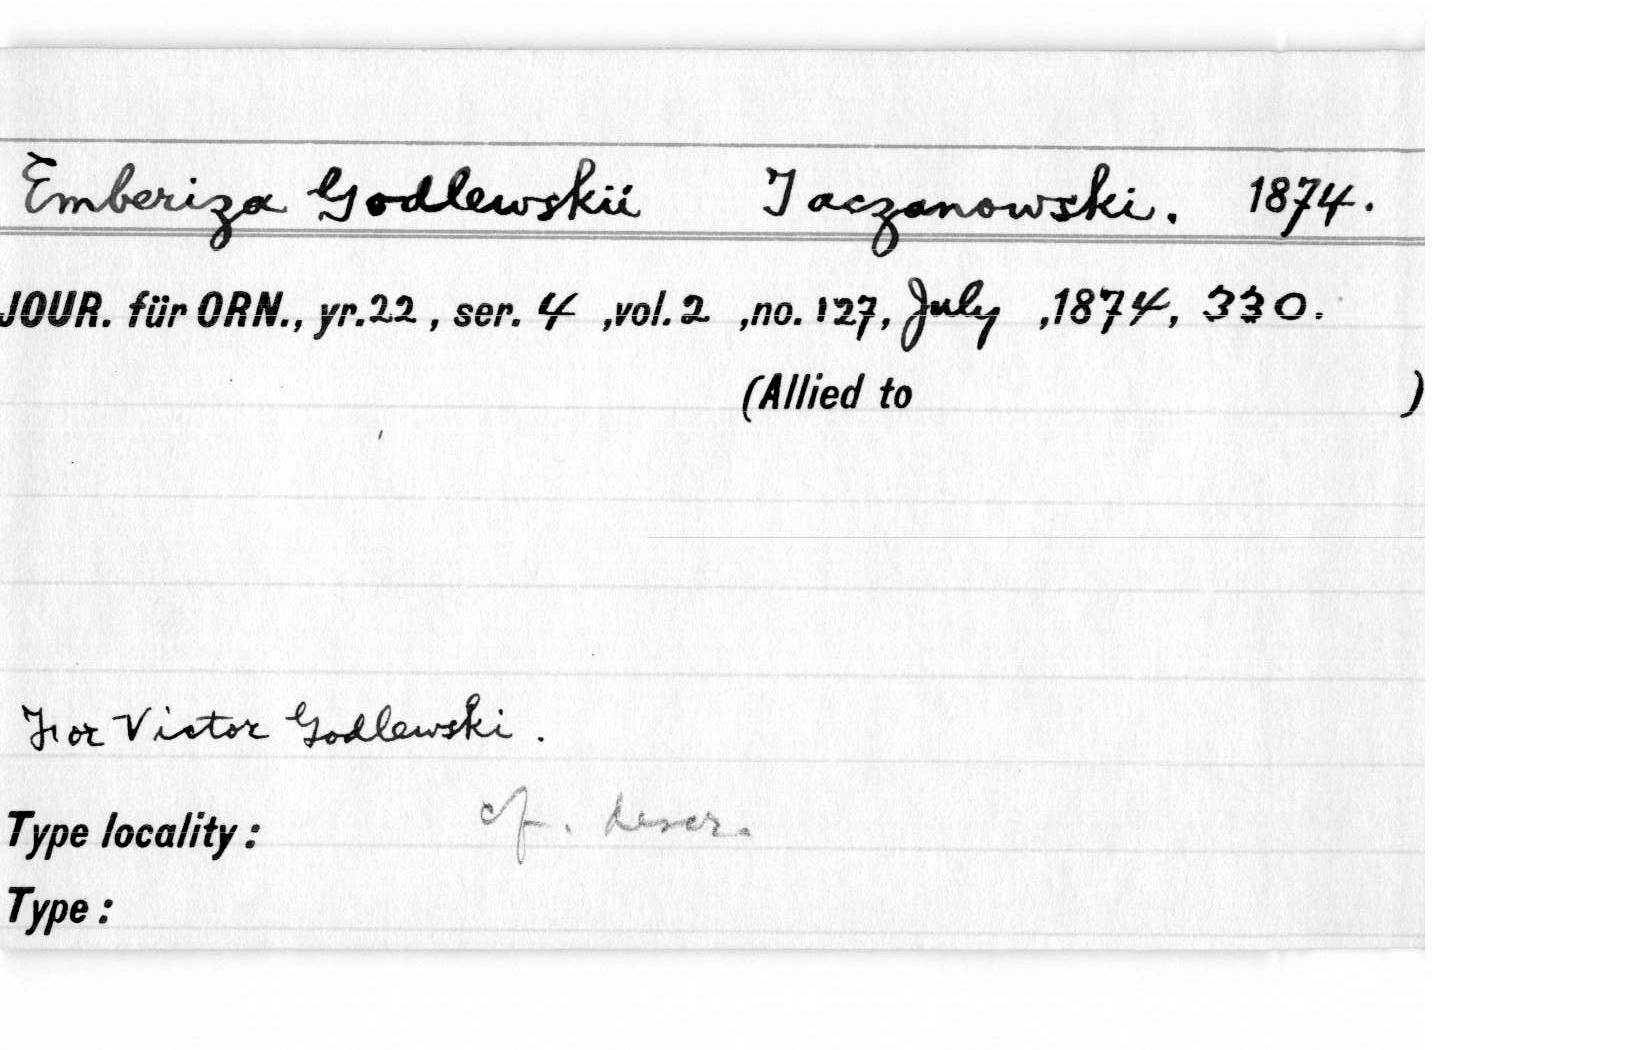 Emberiza Godlewskii Taczanowski. 1874.
JOUR. für ORN., yr. 22, ser. 4 ,vol. 2 ,no. 127, July ,1874, 330.
(Allied to )
For Victor Godlewski.
Type locality: cf. descr.
Type: